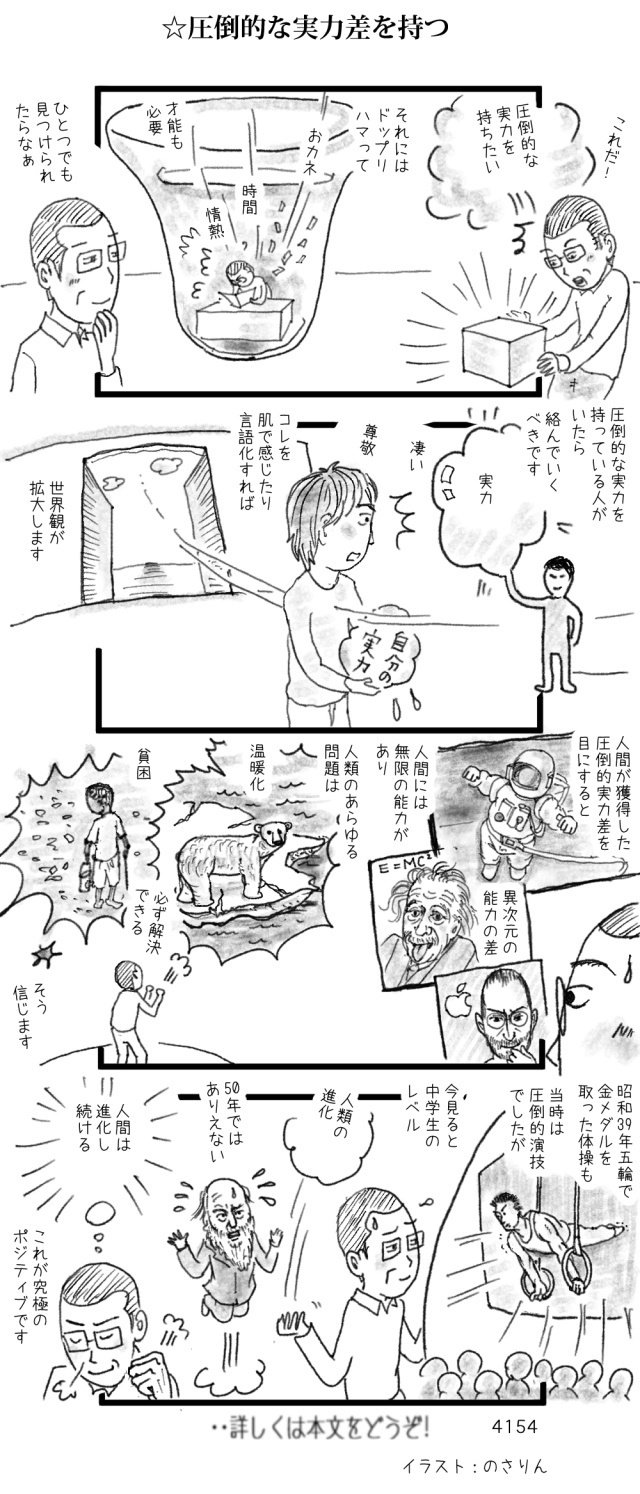 ☆圧倒的な実力差を持つ
これだ!
圧倒的な
実力を
持ちたい
それには
ドップリ
ハマって
おカネ
時間
情熱
才能も
必要
ひとつでも
見つけられ
たらなぁ
圧倒的な実力を
持っている人が
いたら
絡んでいく
べきです
実力
凄い
尊敬
自分の
実力
コレを
肌で感じたり
言語化すれば
世界観が
拡大します
人間が獲得した
圧倒的実力差を
目にすると
異次元の
能力の差
E=MC²
人間には
無限の能力が
あり
人類のあらゆる
問題は
温暖化
貧困
必ず解決
できる
そう
信じます
昭和39年五輪で
金メダルを
取った体操も
当時は
圧倒的演技
でしたが
今見ると
中学生の
レベル
人類の
進化
50年では
ありえない
人間は
進化し
続ける
これが究極の
ポジティブです
‥詳しくは本文をどうぞ!
4154
イラスト:のさりん